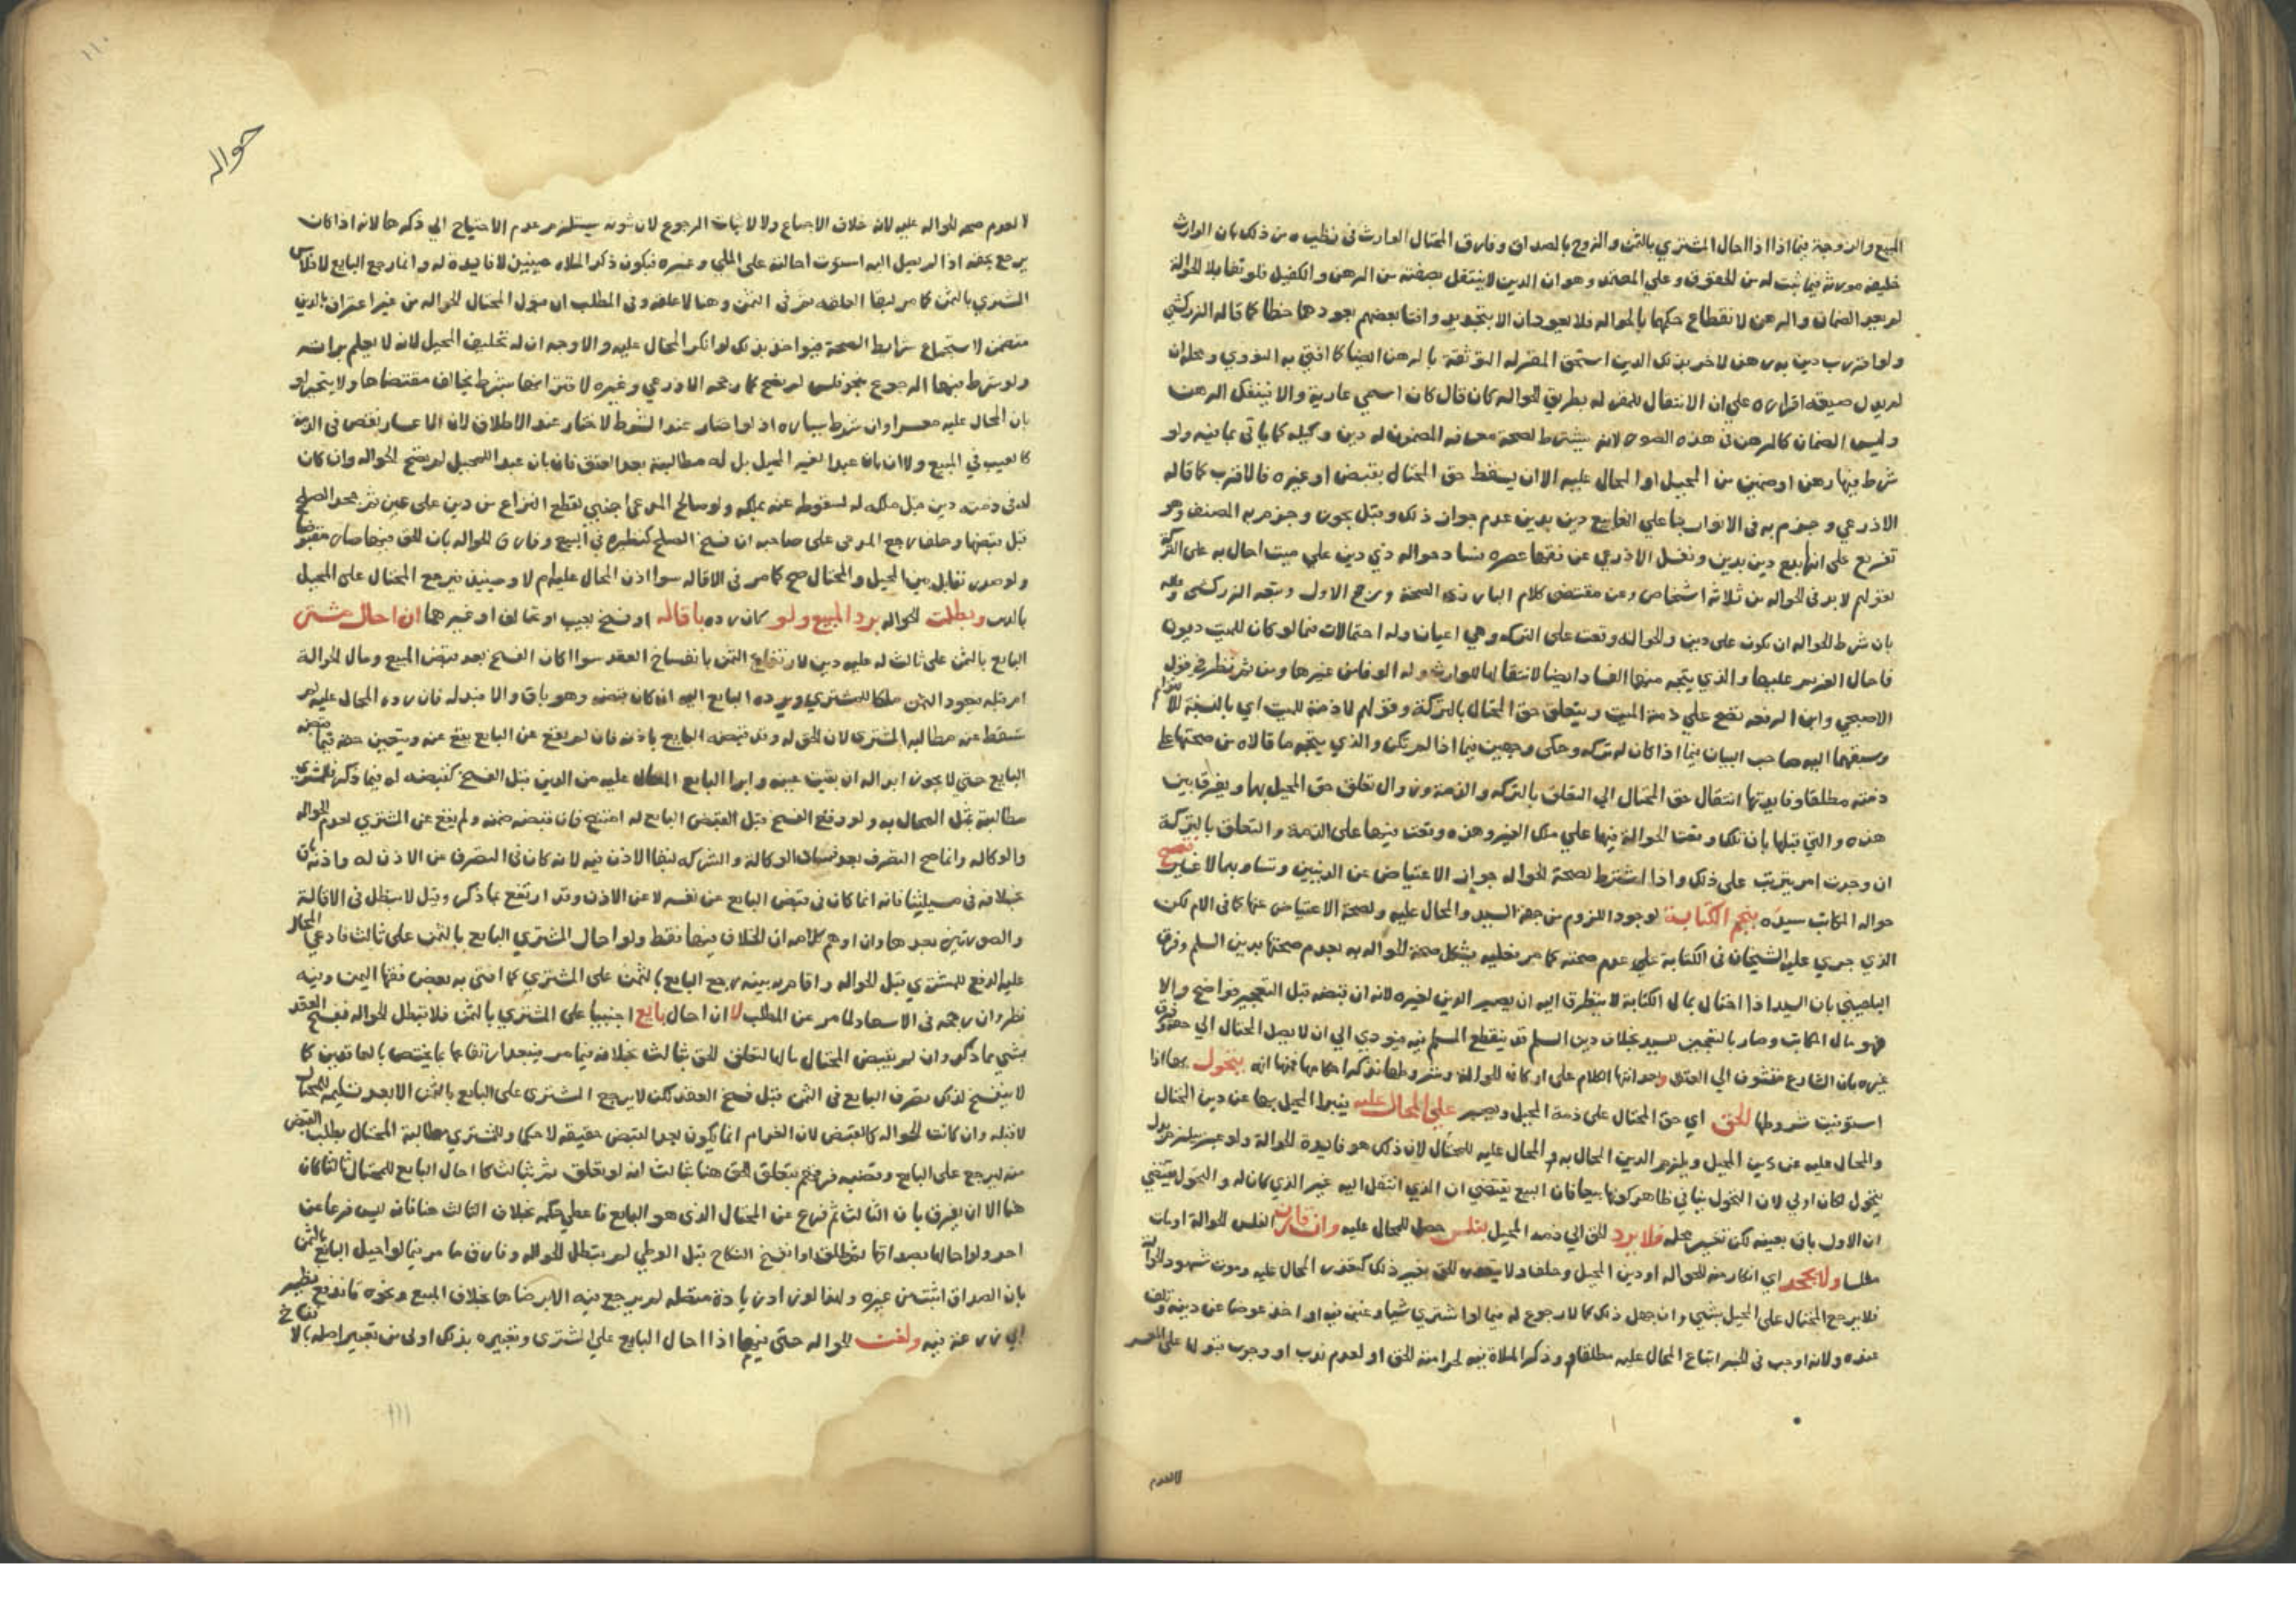 المبيع والزوجة فيما اذا احال المشتري بالثمن والزوج بالصداق وفارق المحتال الوارث في نظيره من ذلك بان الوارث
خليفة مورثه فيما ثبت له من الحقوق وعلي المعتمد وهو ان الدين لا ينتقل بصفته من الرهن والكفيل فلو تقايلا الحوالة
لم يعد الضمان والرهن لانقطاع حكمها بالحواله فلا يعودان الا بتجديد وافتا بعضهم بعودها خطا كما قاله الزركشي
ولو اقر ب دين به رهن لاخر بذلك الدين استحق المقر له التوثقة بالرهن ايضا كما افتي به النووي ومحله ان
لم يدل صيغة اقراره علي ان الانتقال للمقر له بطريق الحواله كان قال كان اسمي عارية والا فينفك الرهن
وليس الضمان كالرهن في هذه الصوره لانه يشترط لصحته معرفة المضمون له دين وكيله كما ياتي بما فيه ولو
شرط فيها رهن او ضمين من المحيل او المحال عليه الا ان يسقط حق المحتال بقبض او غيره فالاقرب كما قاله
الاذرعي وجزم به في الانوار بنا علي انها بيع دين بدين عدم جواز ذلك وقيل يجوز وجزم به المصنف وهو
تفريع علي انها بيع دين بدين ونقل الاذرعي عن فقها عصره فساد حواله ذي دين علي ميت احال به علي التركة
لقولهم لابد في الحواله من ثلاثة اشخاص وعن مقتضي كلام البارزي الصحة ورجح الاول وتبعه الزركشي
بان شرط الحواله ان تكون علي دين والحوالة وقعت علي التركه وهي اعيان وله احتمالات فيما لو كان للميت ديون
فاحال الغريم عليها والذي يتجه منها الفساد ايضا لانتقالها للوارث وله الوفا من غيرها ومن ثم نظر في قول
الاصبحي وابن الرفعه تقع علي ذمة الميت ويتعلق حق المحتال بالتركة وقولهم لا ذمة للميت اي بالنسبة للالتزام
وسبقهما اليه صاحب البيان فيما اذا كان له تركه وحكي وجهين فيما اذا لم تكن والذي يتجه ما قالاه من صحتها علي
ذمته مطلقا وفايدتها انتقال حق المحتال الي التعلق بالتركه والذمة وزوال تعلق حق المحيل بها ويفرق بين
هذه والتي قبلها بان تلك وقعت الحوالة فيها علي ملك الغير وهذه وقعت فيها علي الذمة والتعلق بالتركة
ان وجدت امر يترتب علي ذلك واذا اشترط لصحة الحواله جواز الاعتياض عن الدينين وتساويهما لا غير فتصح
حواله المكاتب سيده بنجم الكتابة لوجود اللزوم من جهة السيد والمحال عليه ولصحة الاعتياض عنها كما في الام لكن
الذي جري عليه الشيخان في الكتابة علي عدم صحته كما مر فعليه يشكل صحة الحواله به بعدم صحتها بدين السلم وفرق
البلقيني بان السيد اذا احتال بمال الكتابة لا يتطرق اليه ان يصير الدين لغيره لانه ان قبضه قبل التعجيز فواضح والا
فهو مال المكاتب وصار بالتعجيز للسيد بخلاف دين السلم قد ينقطع المسلم فيه فيودي الي ان لا يصل المحتال الي حقه وفرق
غيره بان الشارع متشوف الي العتق ولما انها الكلام علي اركان الحوالة وشروطها ذكر احكامها فمنها انه يتحول بها اذا
استوفيت شروطها الحق اي حق المحتال علي ذمة المحيل ويصير علي المحال عليه فيبرا المحيل بها عن دين المحتال
والمحال عليه عن دين المحيل ويلزم الدين المحال به المحال عليه للمحتال لان ذلك هو فايدة الحوالة ولو عبر بيلزم بدل
يتحول لكان اولي لان التحول ينافي ظاهر كونها بيعا فان البيع يقتضي ان الذي انتقل اليه غير الذي كان له والتحول يقتضي
ان الاول باق بعينه لكن تغير محله فلا يرد الحق الي ذمة المحيل بفلس حصل للمحال عليه وان قارن الفلس الحوالة او بات
مفلسا ولا بجحد اي انكار منه للحواله او دين المحيل وحلف ولا بتعذر الحق بغير ذلك كتعذر المحال عليه وموت شهود الحوالة
فلا يرجع المحتال علي المحيل بشي وان جهل ذلك كما لا رجوع له فيما لو اشتري شيا وغبن فيه او اخذ عوضا عن دينه وتلف
عنده ولانه اوجب في الخبر اتباع المحال عليه مطلقا وذكر الملاة فيه لحراسة الحق او لعدم ندب او وجوب قبولها علي المعسر
لا لعدم
حواله
١١٠
لا لعدم صحة الحواله عليه لانه خلاف الاجماع ولا لاثبات الرجوع لان ثبوته يستلزم عدم الاحتياج الي ذكرها لانه اذا كان
يرجع بحقه اذا لم يصل اليه استوت احالته علي الملي وغيره فيكون ذكر الملاه حينئذ لا فايدة له وانما رجع البايع لافلاس
المشتري بالثمن كما مر لبقا العلقه ثم في الثمن وهنا لا علقه وفي المطلب ان قبول المحتال الحواله من غير اعتراف بالدين
متضمن لاستجماع شرايط الصحة فيواخذ بذلك لو انكر المحال عليه والاوجه ان له تحليف المحيل لانه لا يعلم براته
ولو شرط فيها الرجوع بنحو فلس لم يصح كما رجحه الاذرعي وغيره لاقترانها بشرط يخالف مقتضاها ولا يتخير لو
بان المحال عليه معسرا وان شرط يساره اذ لو اختار عند الشرط لاختار عند الاطلاق لان الاعسار نقص في الذمة
كالعيب في المبيع ولا ان بان عبدا لغير المحيل بل له مطالبته بعد العتق فان بان عبدا للمحيل لم يصح الحواله وان كان
له في ذمته دين قبل ملكه له لسقوطه عنه بملكه ولو صالح المدعي اجنبي لقطع النزاع من دين علي عين ثم جحد الصلح
قبل قبضها وحلف رجع المدعي علي صاحبه ان فسخ الصلح كنظيره في البيع وفارق الحواله بان الحق فيها صار مقبوضا
ولو صدر تقايل بين المحيل والمحتال صح كما مر في الاقاله سوا اذن المحال عليه ام لا وحينئذ فيرجع المحتال علي المحيل
بالدين وبطلت الحواله برد المبيع ولو كان رده باقاله او فسخ بعيب او تحالف او غيرهما ان احال مشتري
البايع بالثمن علي ثالث له عليه دين لارتفاع الثمن بانفساخ العقد سوا كان الفسخ بعد قبض المبيع ومال الحوالة
ام قبله فيعود الثمن ملكا للمشتري ويرده البايع اليه ان كان قبضه وهو باق والا فبدله فان رده المحال عليه لم
تسقط عنه مطالبة المشتري لان الحق له وقد قبضه البايع باذنه فان لم يقع عن البايع يقع عنه ويتعين حقه فيما قبضه
البايع حتي لا يجوز ابداله ان بقيت عينه وابرا البايع المحال عليه من الدين قبل الفسخ كقبضه له فيما ذكر فللمشتري
مطالبته بمثل المحال به ولو وقع الفسخ قبل القبض البايع له امتنع فان قبضه ضمنه ولم يقع عن المشتري لعدم الحواله
والوكاله وانما صح التصرف بعد فساد الوكالة والشركه لبقا الاذن فيه لانه كان في التصرف من الاذن له واذنه كان
بخلافه في مسيلتنا فانه انما كان في قبض البايع عن نفسه لا عن الاذن وقد ارتفع بما ذكر وقيل لا تبطل في الاقالة
والصورتين بعدها وان اوهم كلامه ان الخلاف فيها فقط ولو احال المشتري البايع بالثمن علي ثالث فادعي المحال
عليه الدفع للمشتري قبل الحواله واقام به بينه رجع البايع بالثمن علي المشتري كما افتي به بعض فقها اليمن وفيه
نظر وان رجحه في الاسعاد لما مر عن المطلب لا ان احال بايع اجنبيا علي المشتري بالثمن فلا تبطل الحواله بفسخ العقد
بشي مما ذكر وان لم يقبض المحتال مالها لتعلق الحق بثالث بخلافه فيما مر فيبعد ارتفاعها بما يختص بالعاقدين كما
لا ينفسخ لذلك تصرف البايع في الثمن قبل فسخ العقد لكن لا يرجع المشتري علي البايع بالثمن الا بعد تسليمه للمحتال
لا قبله وان كانت الحواله كالقبض لان الغرم انما يكون بعد القبض حقيقه لا حكما وللمشتري مطالبة المحتال بطلب القبض
منه ليرجع علي البايع وقضيه فرقهم بتعلق الحق هنا بثالث انه لو تعلق ثم بثالث كما احال البايع للمحتال ثالثا كان
هنا الا ان يفرق بان الثالث ثم فرع عن المحتال الذي هو البايع فاعطي حكمه بخلاف الثالث هنا فانه ليس فرعا عن
احد ولو احالها بصداقها ثم طلق او انفسخ النكاح قبل الوطي لم تبطل الحواله وفارق ما مر فيما لو احيل البايع بالثمن
بان الصداق اثبت من غيره ولهذا لو زاد زيادة متصله لم يرجع فيه الا برضاها بخلاف المبيع ونحوه فاندفع تنظير
ابي زرعة فيه ولغت الحواله حتي فيما اذا احال البايع علي المشتري وتعبيره بذلك اولي من تعبير اصله بالانفساخ
١١١